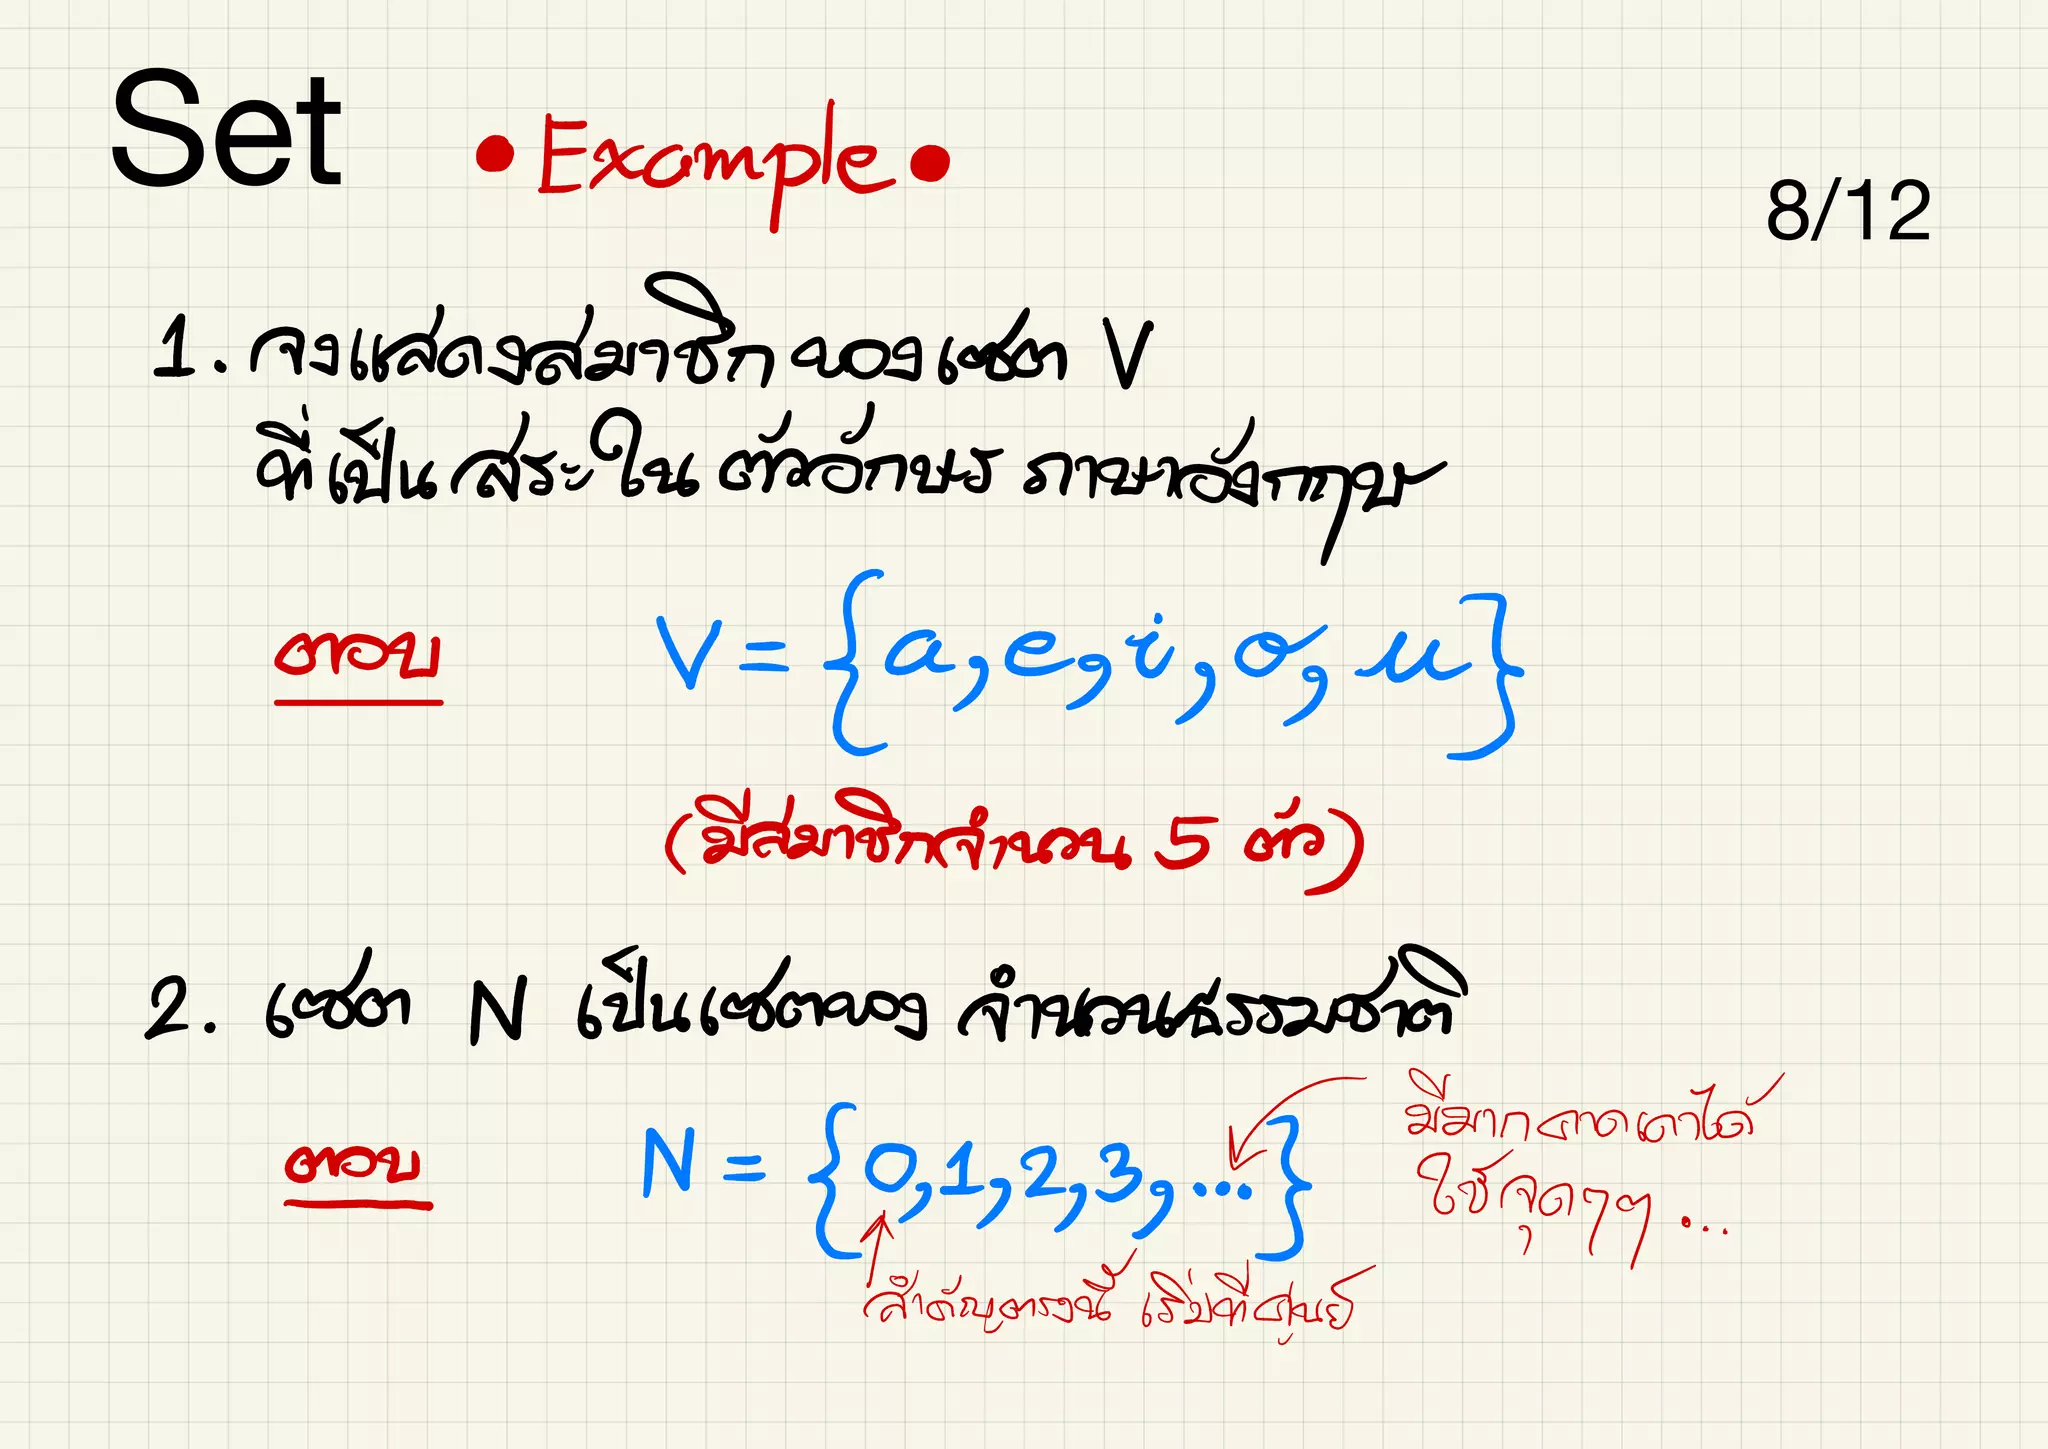 Set • Example •
8/12
1. จงแสดงสมาชิกของเซต V
ที่เป็นสระใน ตัวอักษร ภาษาอังกฤษ
ตอบ V = {a, e, i, o, u}
(มีสมาชิกจำนวน 5 ตัว)
2. เซต N เป็นเซตของ จำนวนธรรมชาติ
มีมากคาดเดาได้
ตอบ N = {0, 1, 2, 3, ...}
ใช้จุดๆๆ ...
สำคัญตรงนี้ เริ่มที่ศูนย์